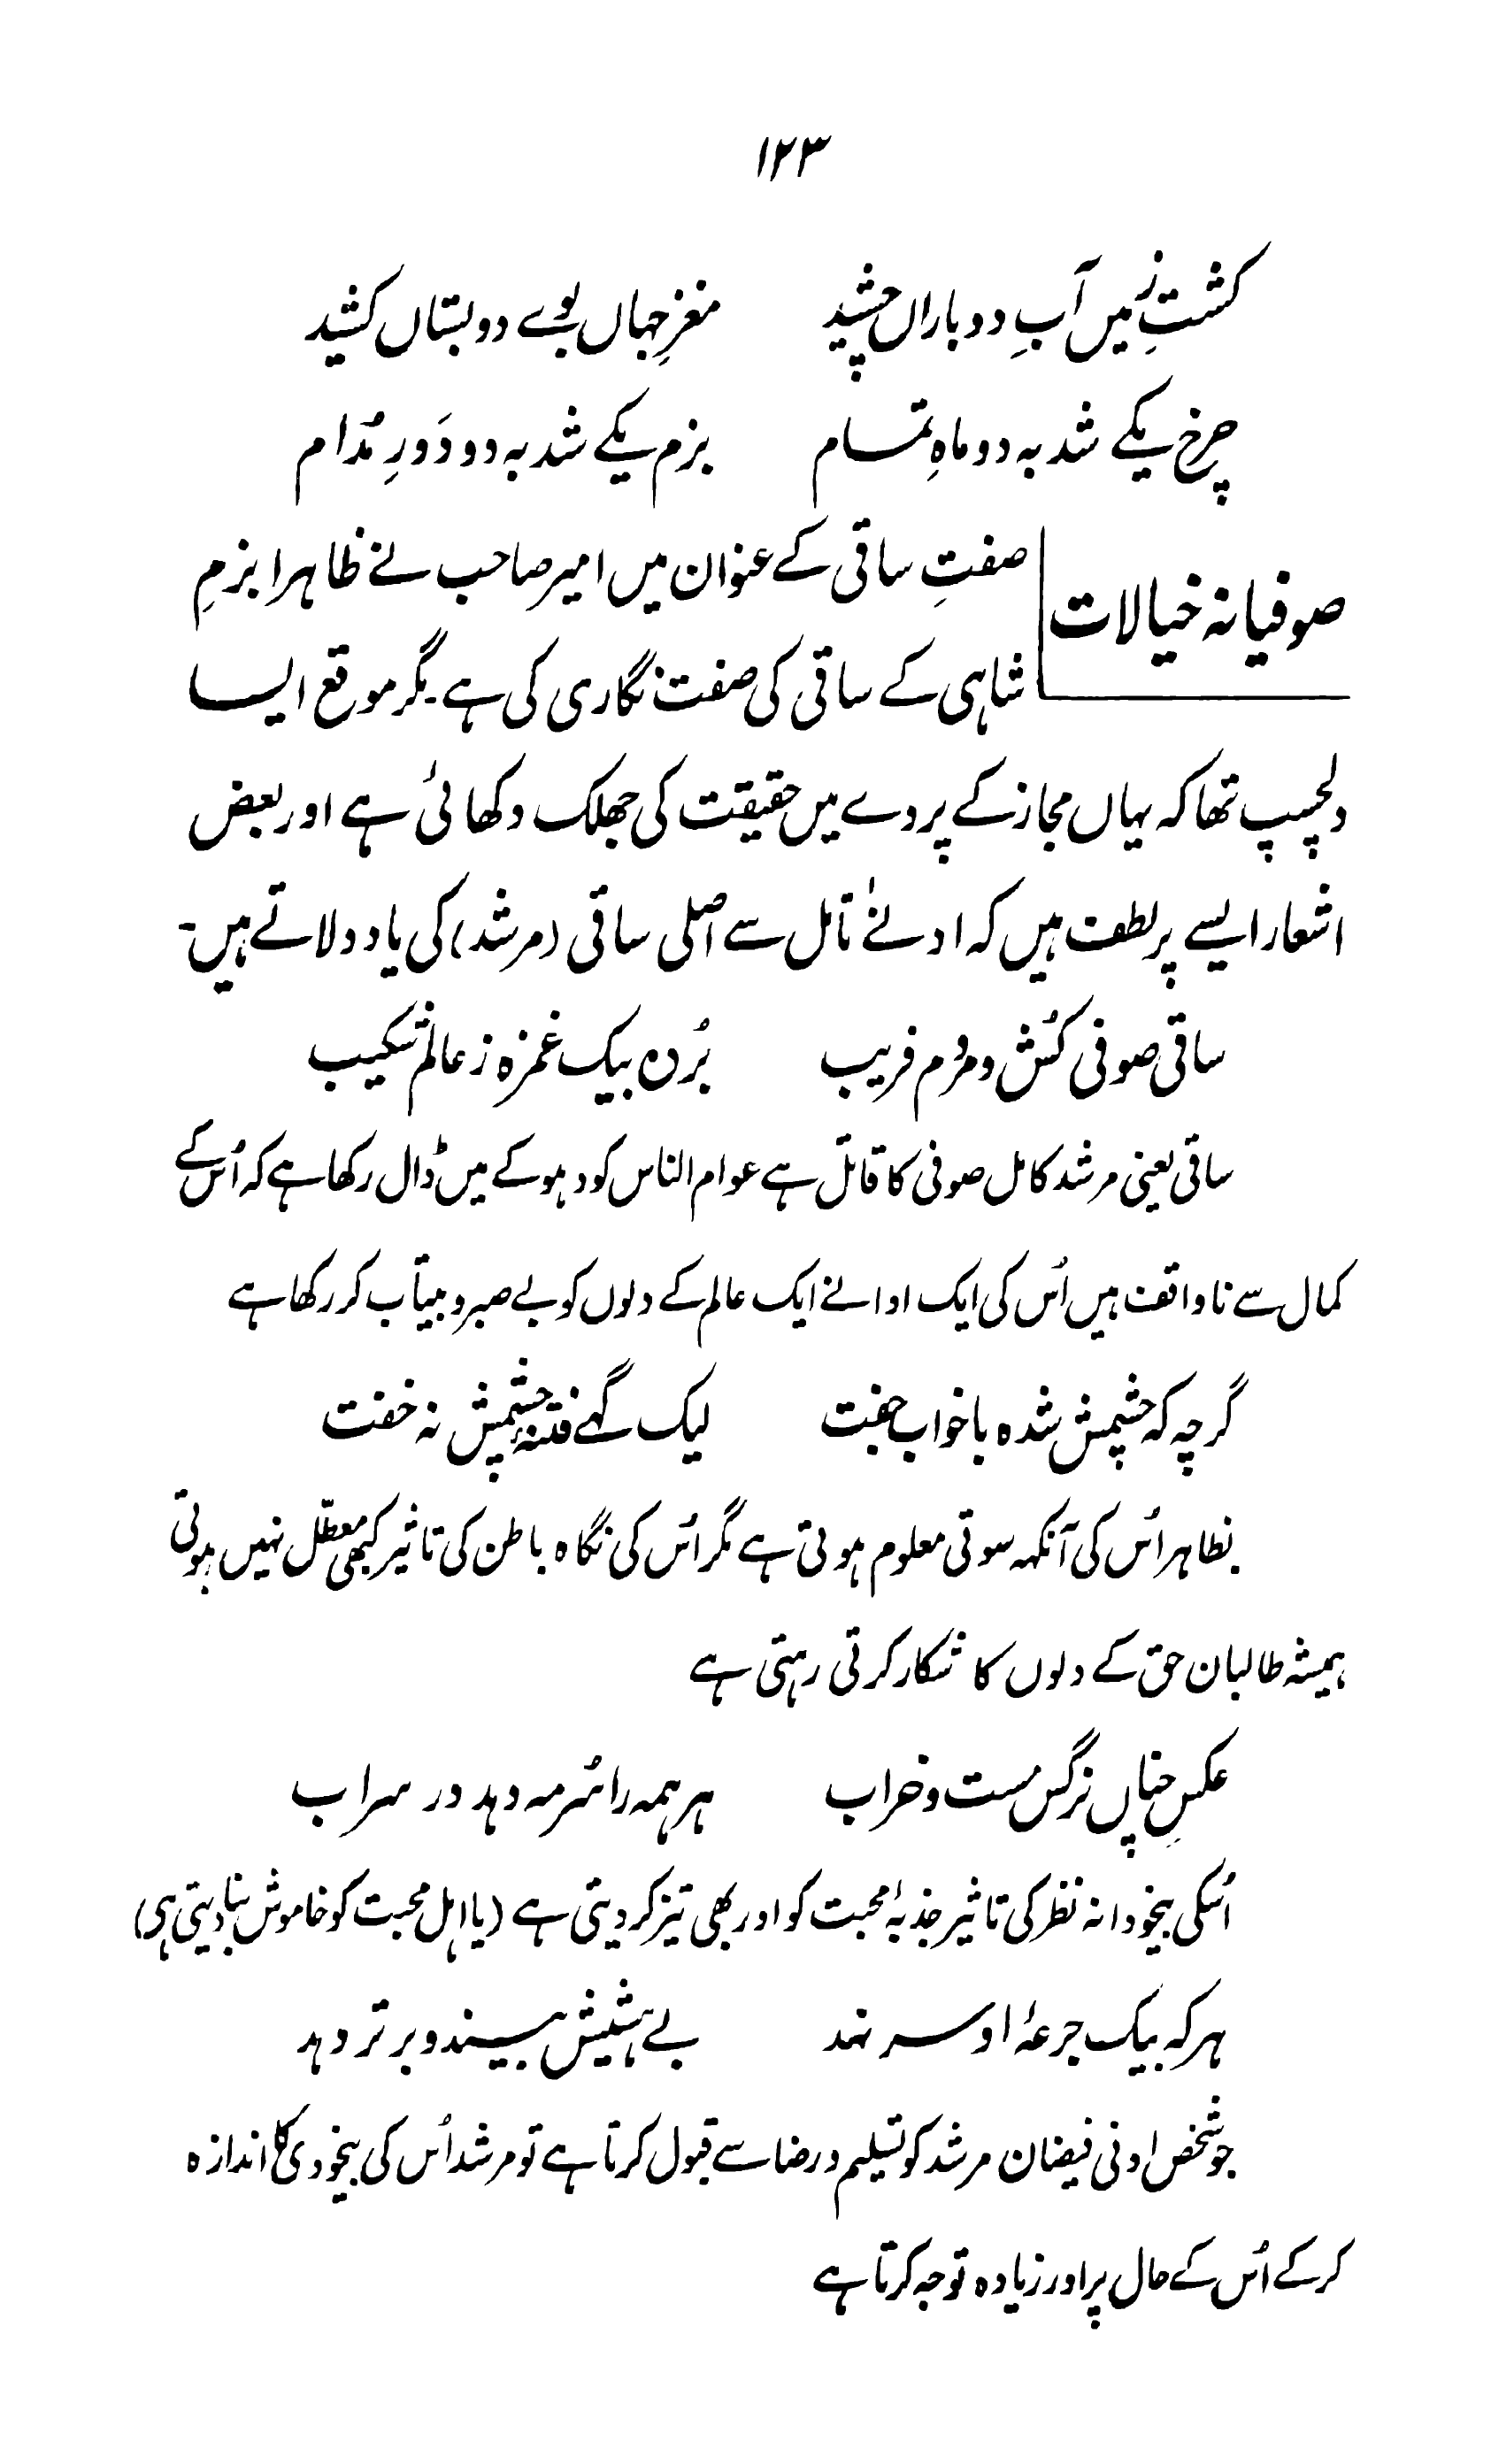 ۱۲۳
کشتِ زمیں آبِ دو باراں چشید مغزِ جہاں بوے دو بستاں کشید
چرخ یکے شد بہ دو ماہِ تمام بزم یکے شد بہ دو دَورِ مُدام
صوفیانہ خیالات
صفتِ ساقی کے عنوان میں امیر صاحب نے ظاہرا بزمِ
شاہی کے ساقی کی صفت نگاری کی ہے۔ مگر موقع ایسا
دلچسپ تھا کہ یہاں مجاز کے پردے میں حقیقت کی جھلک دکھائی ہے اور بعض
اشعار ایسے پر لطف ہیں کہ ادنےٰ تامل سے اصلی ساقی (مرشد) کی یاد دلاتے ہیں۔
ساقی صوفی کُش و مردم فریب بُردہ بیک غمزہ ز عالم شکیب
ساقی یعنی مرشد کامل صوفی کا قاتل ہے عوام الناس کو دہوکے میں ڈال رکھا ہے کہ اُس کے
کمال سے ناواقف ہیں اُس کی ایک ادا نے ایک عالم کے دلوں کو بے صبر و بیتاب کر رکھا ہے
گرچہ کہ چشمش شدہ با خواب جفت لیک گہے فتنۂ چشمش نہ خفت
بظاہر اُس کی آنکہہ سوتی معلوم ہوتی ہے مگر اُس کی نگاہ باطن کی تاثیر کبھی معطّل نہیں ہوتی
ہمیشہ طالبان حق کے دلوں کا شکار کرتی رہتی ہے
عکسِ چناں نرگس مست و خراب ہر ہمہ را سُرمہ دہد در سراب
اُسکی بیخودانہ نظر کی تاثیر جذبۂ محبت کو اور بھی تیز کر دیتی ہے (یا اہل محبت کو خاموش بنا دیتی ہی)
ہر کہ بیک جرعۂ او سر نہد بے ہشیش بیند و برتر دہد
جو شخص ادنی فیضان مرشد کو تسلیم و رضا سے قبول کرتا ہے تو مرشد اُس کی بیخودی کا اندازہ
کرکے اُس کے حال پر اور زیادہ توجہ کرتا ہے